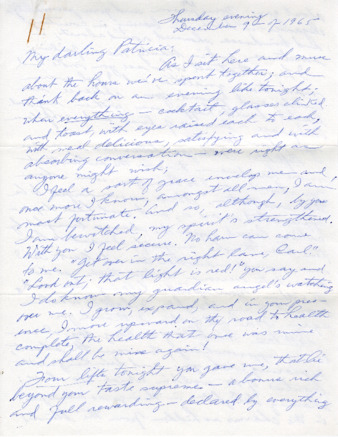 11
Thursday evening
December 9 - 1965
My darling Patricia:
As I sit here and muse
about the hours we've spent together; and
think back on an evening like tonight;
when everything — cocktail glasses clinked
and toast, with eyes raised each to each,
with meal delicious, satisfying and with
absorbing conversation — were right as
anyone might wish;
I feel a sort of grace envelops me — and
once more I know, amongst all men, I am
most fortunate. And so, although, by you
I am bewitched, my spirit's strengthened.
With you I feel secure. No harm can come
to me. "Get over in the right lane, Carl"
"Look out; that light is red!" you say and
I do know my guardian angel's watching
over me. I grow, expand, and in your pres-
ence, I move upward on the road to health
complete, the health that once was mine
and shall be mine again!
Your gifts tonight you gave me, that lie
beyond your taste supreme — a bonus rich
and full rewarding — declared by everything